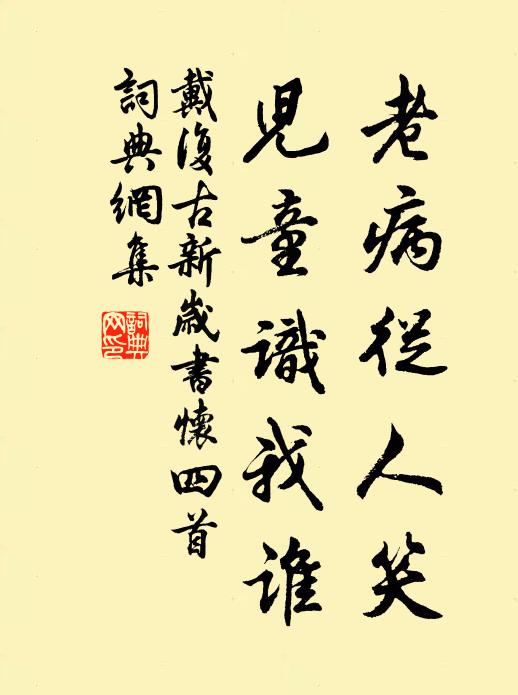 老病從人笑
兒童識我誰
戴復古新歲書懷四首
詞典網集
詞典
网印